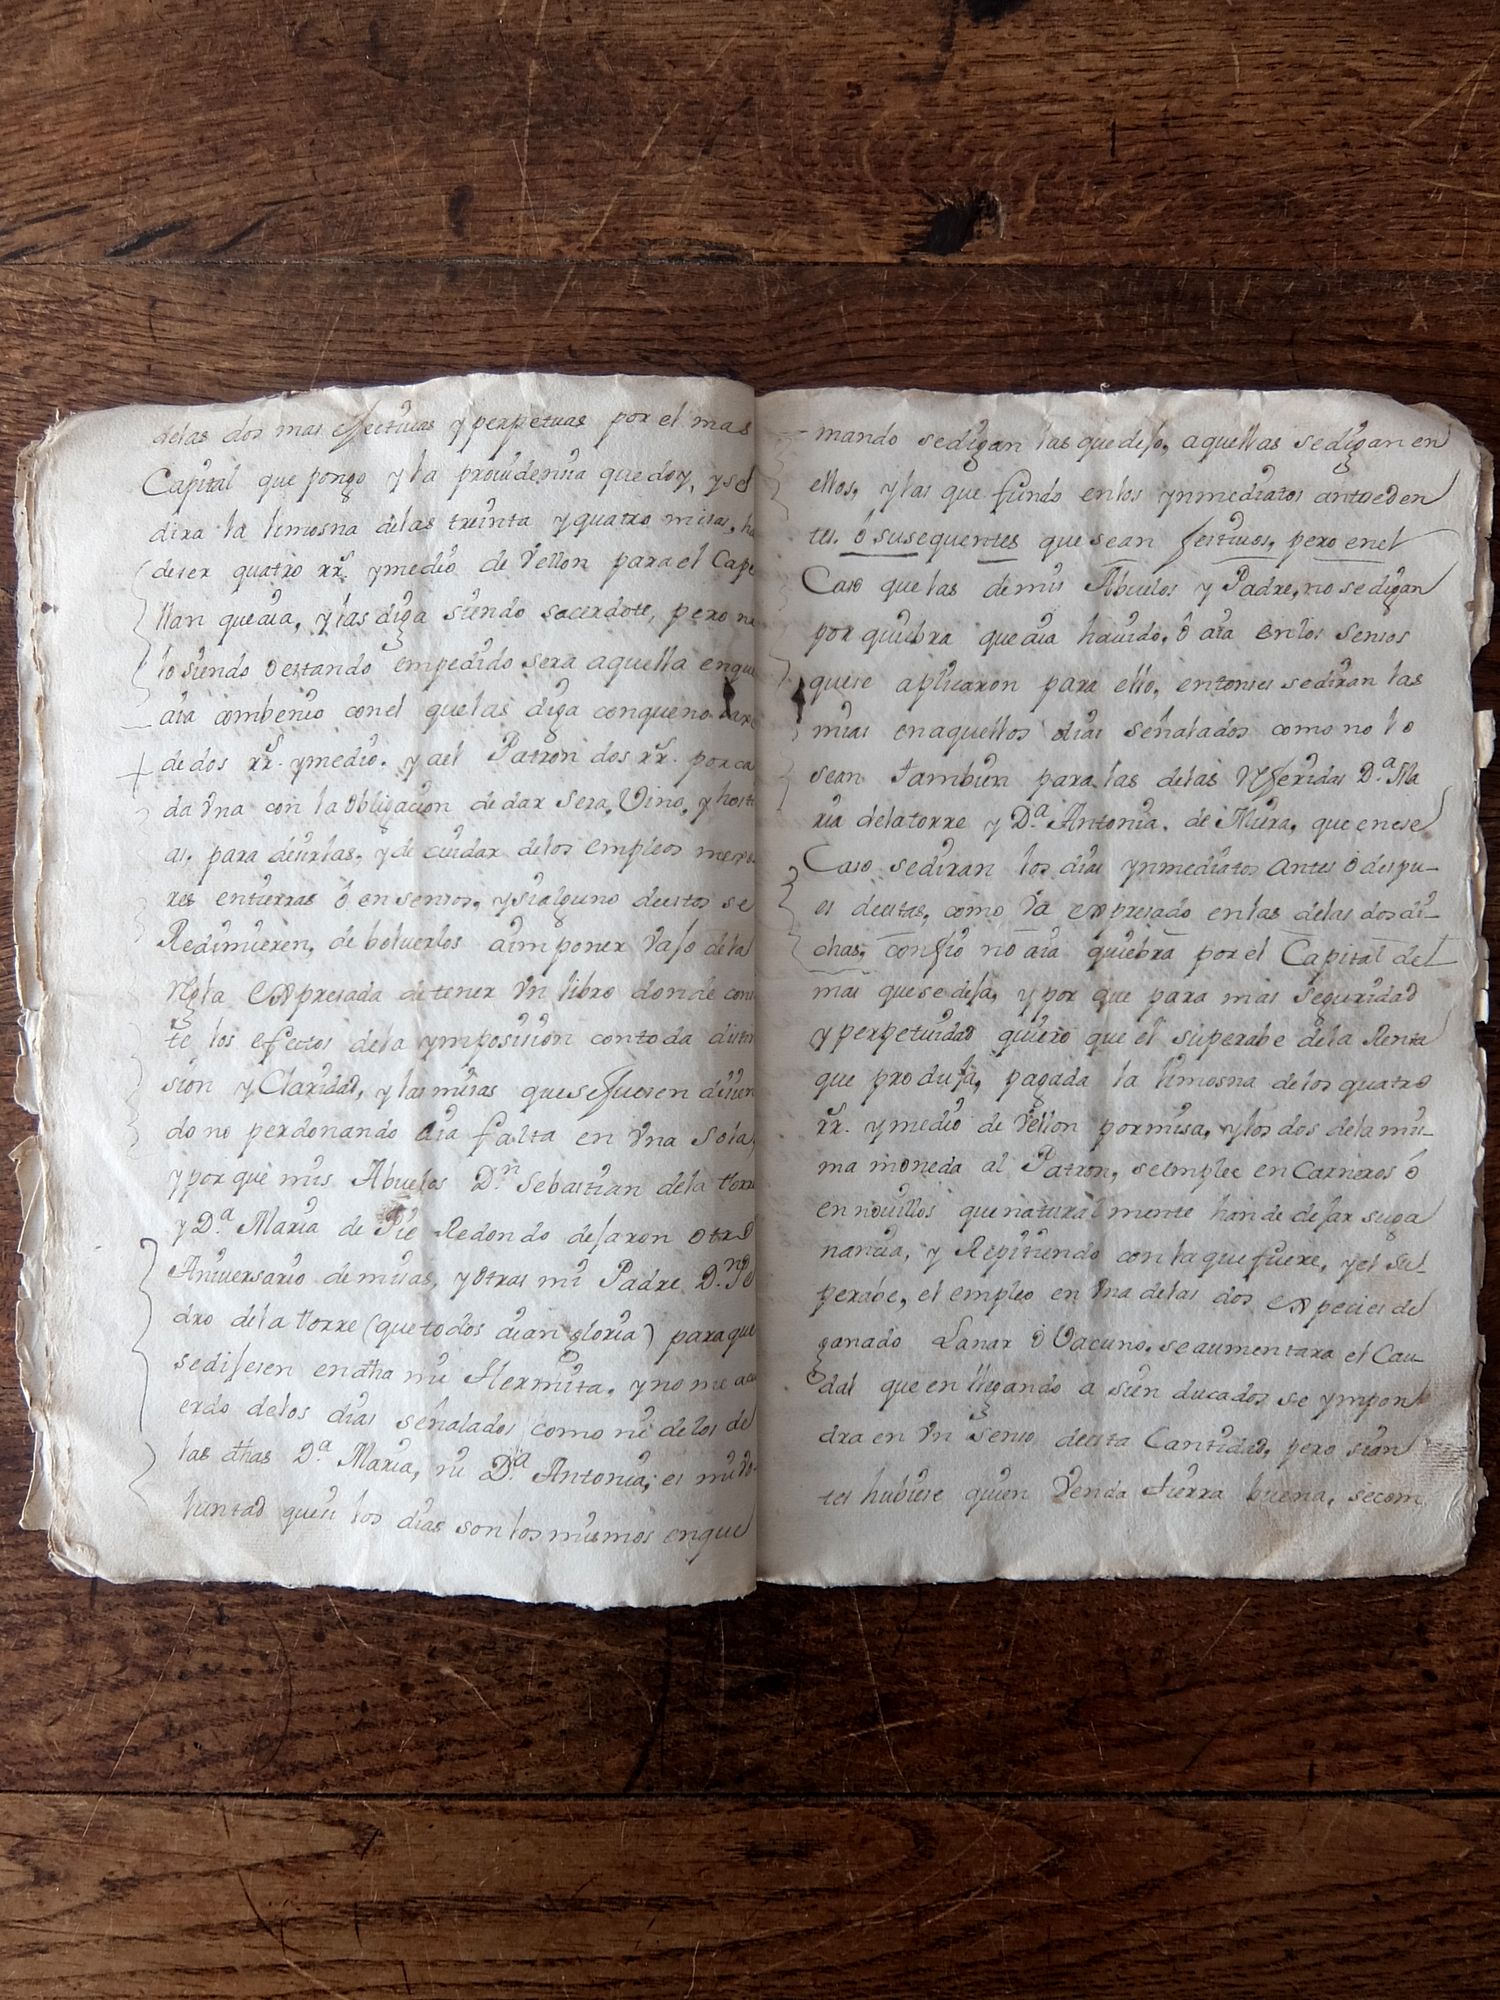 delas dos mas efectivas y perpetuas por el mas
Capital que pongo y la providencia que doy, y se
dira la limosna delas treinta y quatro misas, ha
deser quatro rr.s y medio de Vellon para el Cape
llan que aia, y las diga siendo sacerdote, pero no
lo siendo o estando empedido sera aquella enque
aia combenio conel que las diga conqueno
de dos rr.s y medio. y ael Patron dos rr.s por ca
da Vna con la obligacion de dar Sera, Vino, y hosti
as, para decirlas, y de cuidar delos empleos mexo
res entierras ó en sensos, y si alguno de estos se
Redimieren, de bolverlos aimponer vajo dela
Regla expresada de tener Vn libro donde cons
te los efectos dela ymposision contoda distin
sion y Claridad, y las misas que se fuesen disien
do no perdonando aia falta en Vna Sola,
y por que mis Abuelos D.n Sebastian dela torre
y D.a Maria de Pie Redondo dejaron otro
Aniversario de misas, y otras mi Padre D.n Pe
dro dela torre (que todos aian gloria) para que
se dijesen en dha mi Hermita, y no me acu
erdo delos dias señalados como ni de los de
las dhas D.a Maria, ni D.a Antonia, es mi vo-
luntad que si los dias son los mismos enque
mando se digan las que dejo, aquellas se digan en
ellos, y las que fundo en los ynmediatos anteceden
tes, ó susequentes que sean festivos, pero en el
Caso que las de mis Abuelos y Padre, no se digan
por quiebra que aia havido, ó aia en los Sensos
que se aplicaron para ello, entonses se diran las
mias en aquellos dias señalados como no lo
sean tambien para las delas Referidas D.a Ma
ria delatorre y D.a Antonia de Miera, que en ese
Caso se diran los dias ynmediatos antes o despu-
es de estas, como va expresado en las delas dos di-
chas, confio no aia quiebra por el Capital del
mas que se deja, y por que para mas seguridad
y perpetuidad quiero que el superabe dela Renta
que produja, pagada la limosna de los quatro
rr.s y medio de Vellon por misa, y los dos dela mis-
ma moneda al Patron, se emplee en Carneros ó
en novillos que naturalmente han de dejar su ga
nancia, y Repitiendo con la que fuere, y el Su-
perabe, el empleo en Vna delas dos expecies de
ganado Lanar o Vacuno, se aumentara el Cau-
dal que en llegando a sien ducados se ympon
dra en Vn Senso de esta Cantidad, pero si an
tes hubiese quien Venda tierra buena, se com